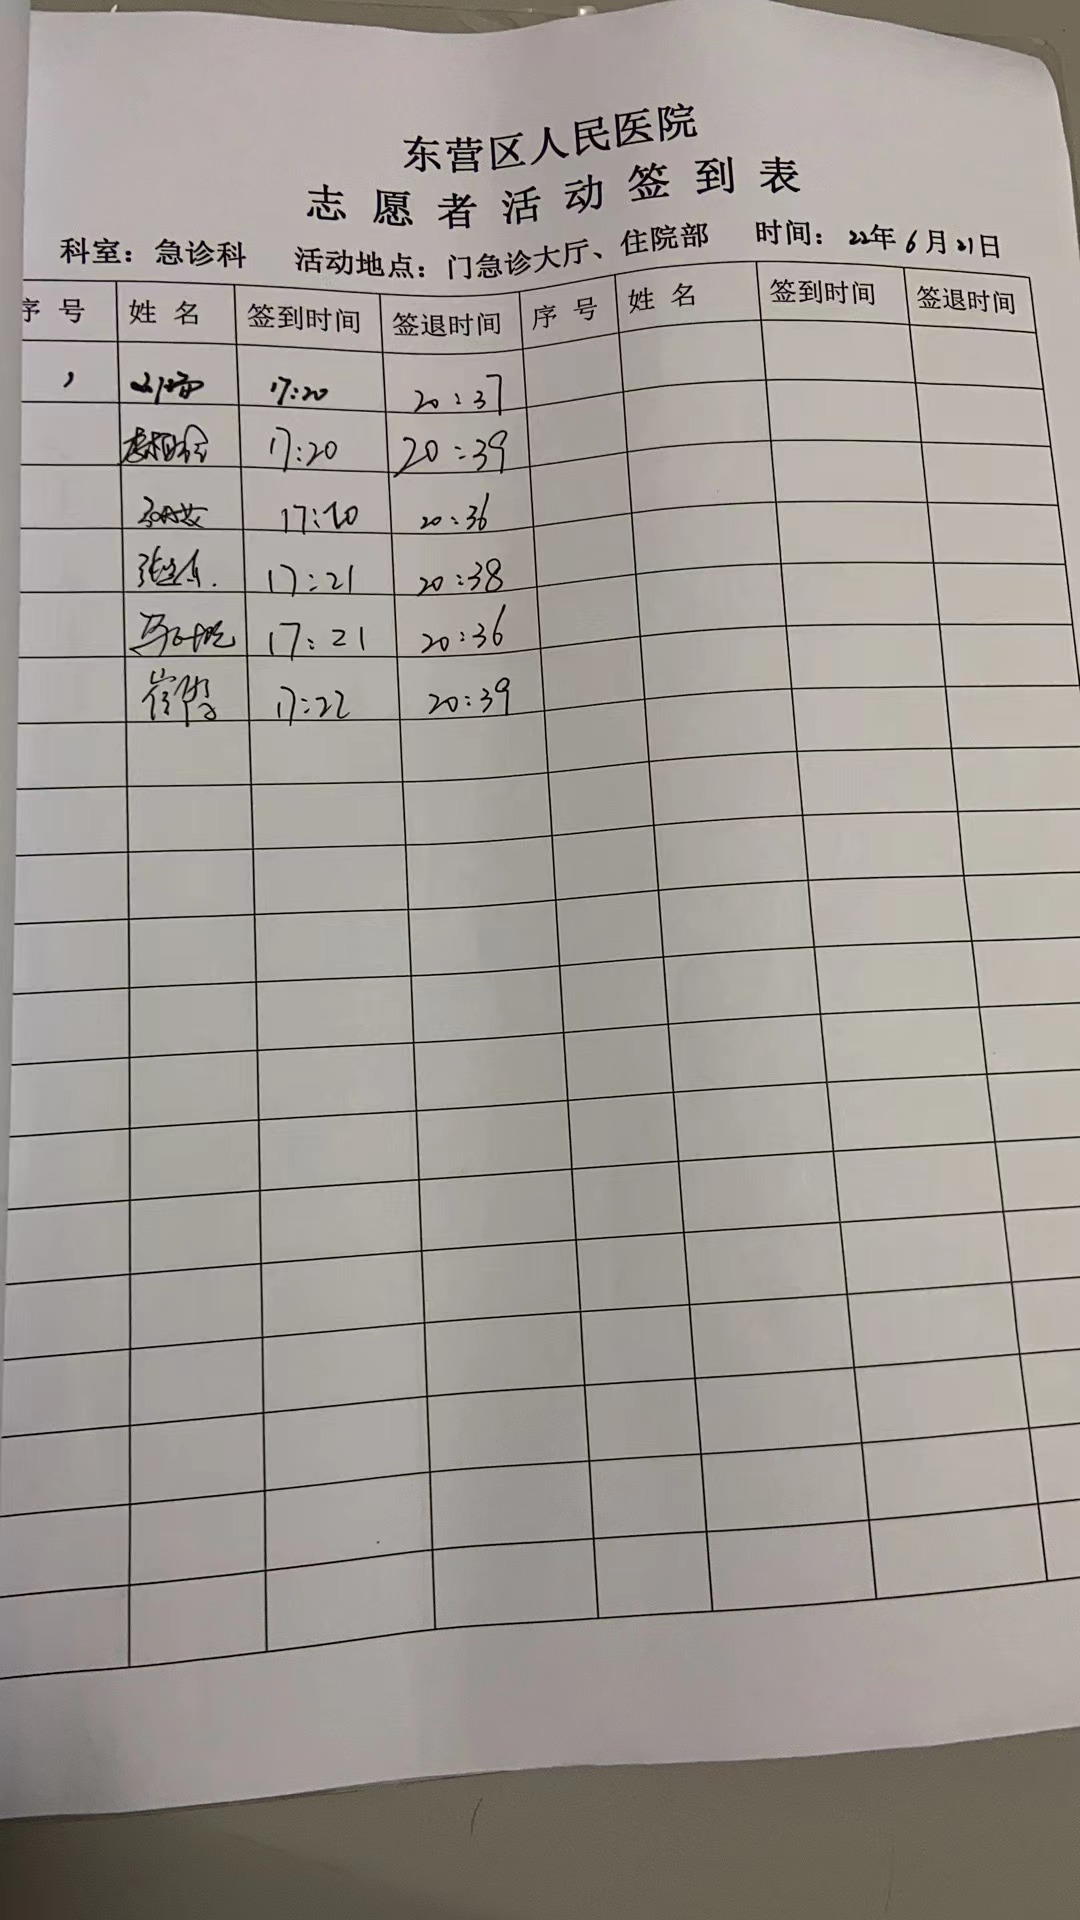 东营区人民医院
志愿者活动签到表
科室：急诊科 活动地点：门急诊大厅、住院部 时间：22年6月21日
序号 姓名 签到时间 签退时间 序号 姓名 签到时间 签退时间
17:20 20:37
17:20 20:39
17:20 20:36
17:21 20:38
17:21 20:36
17:22 20:39